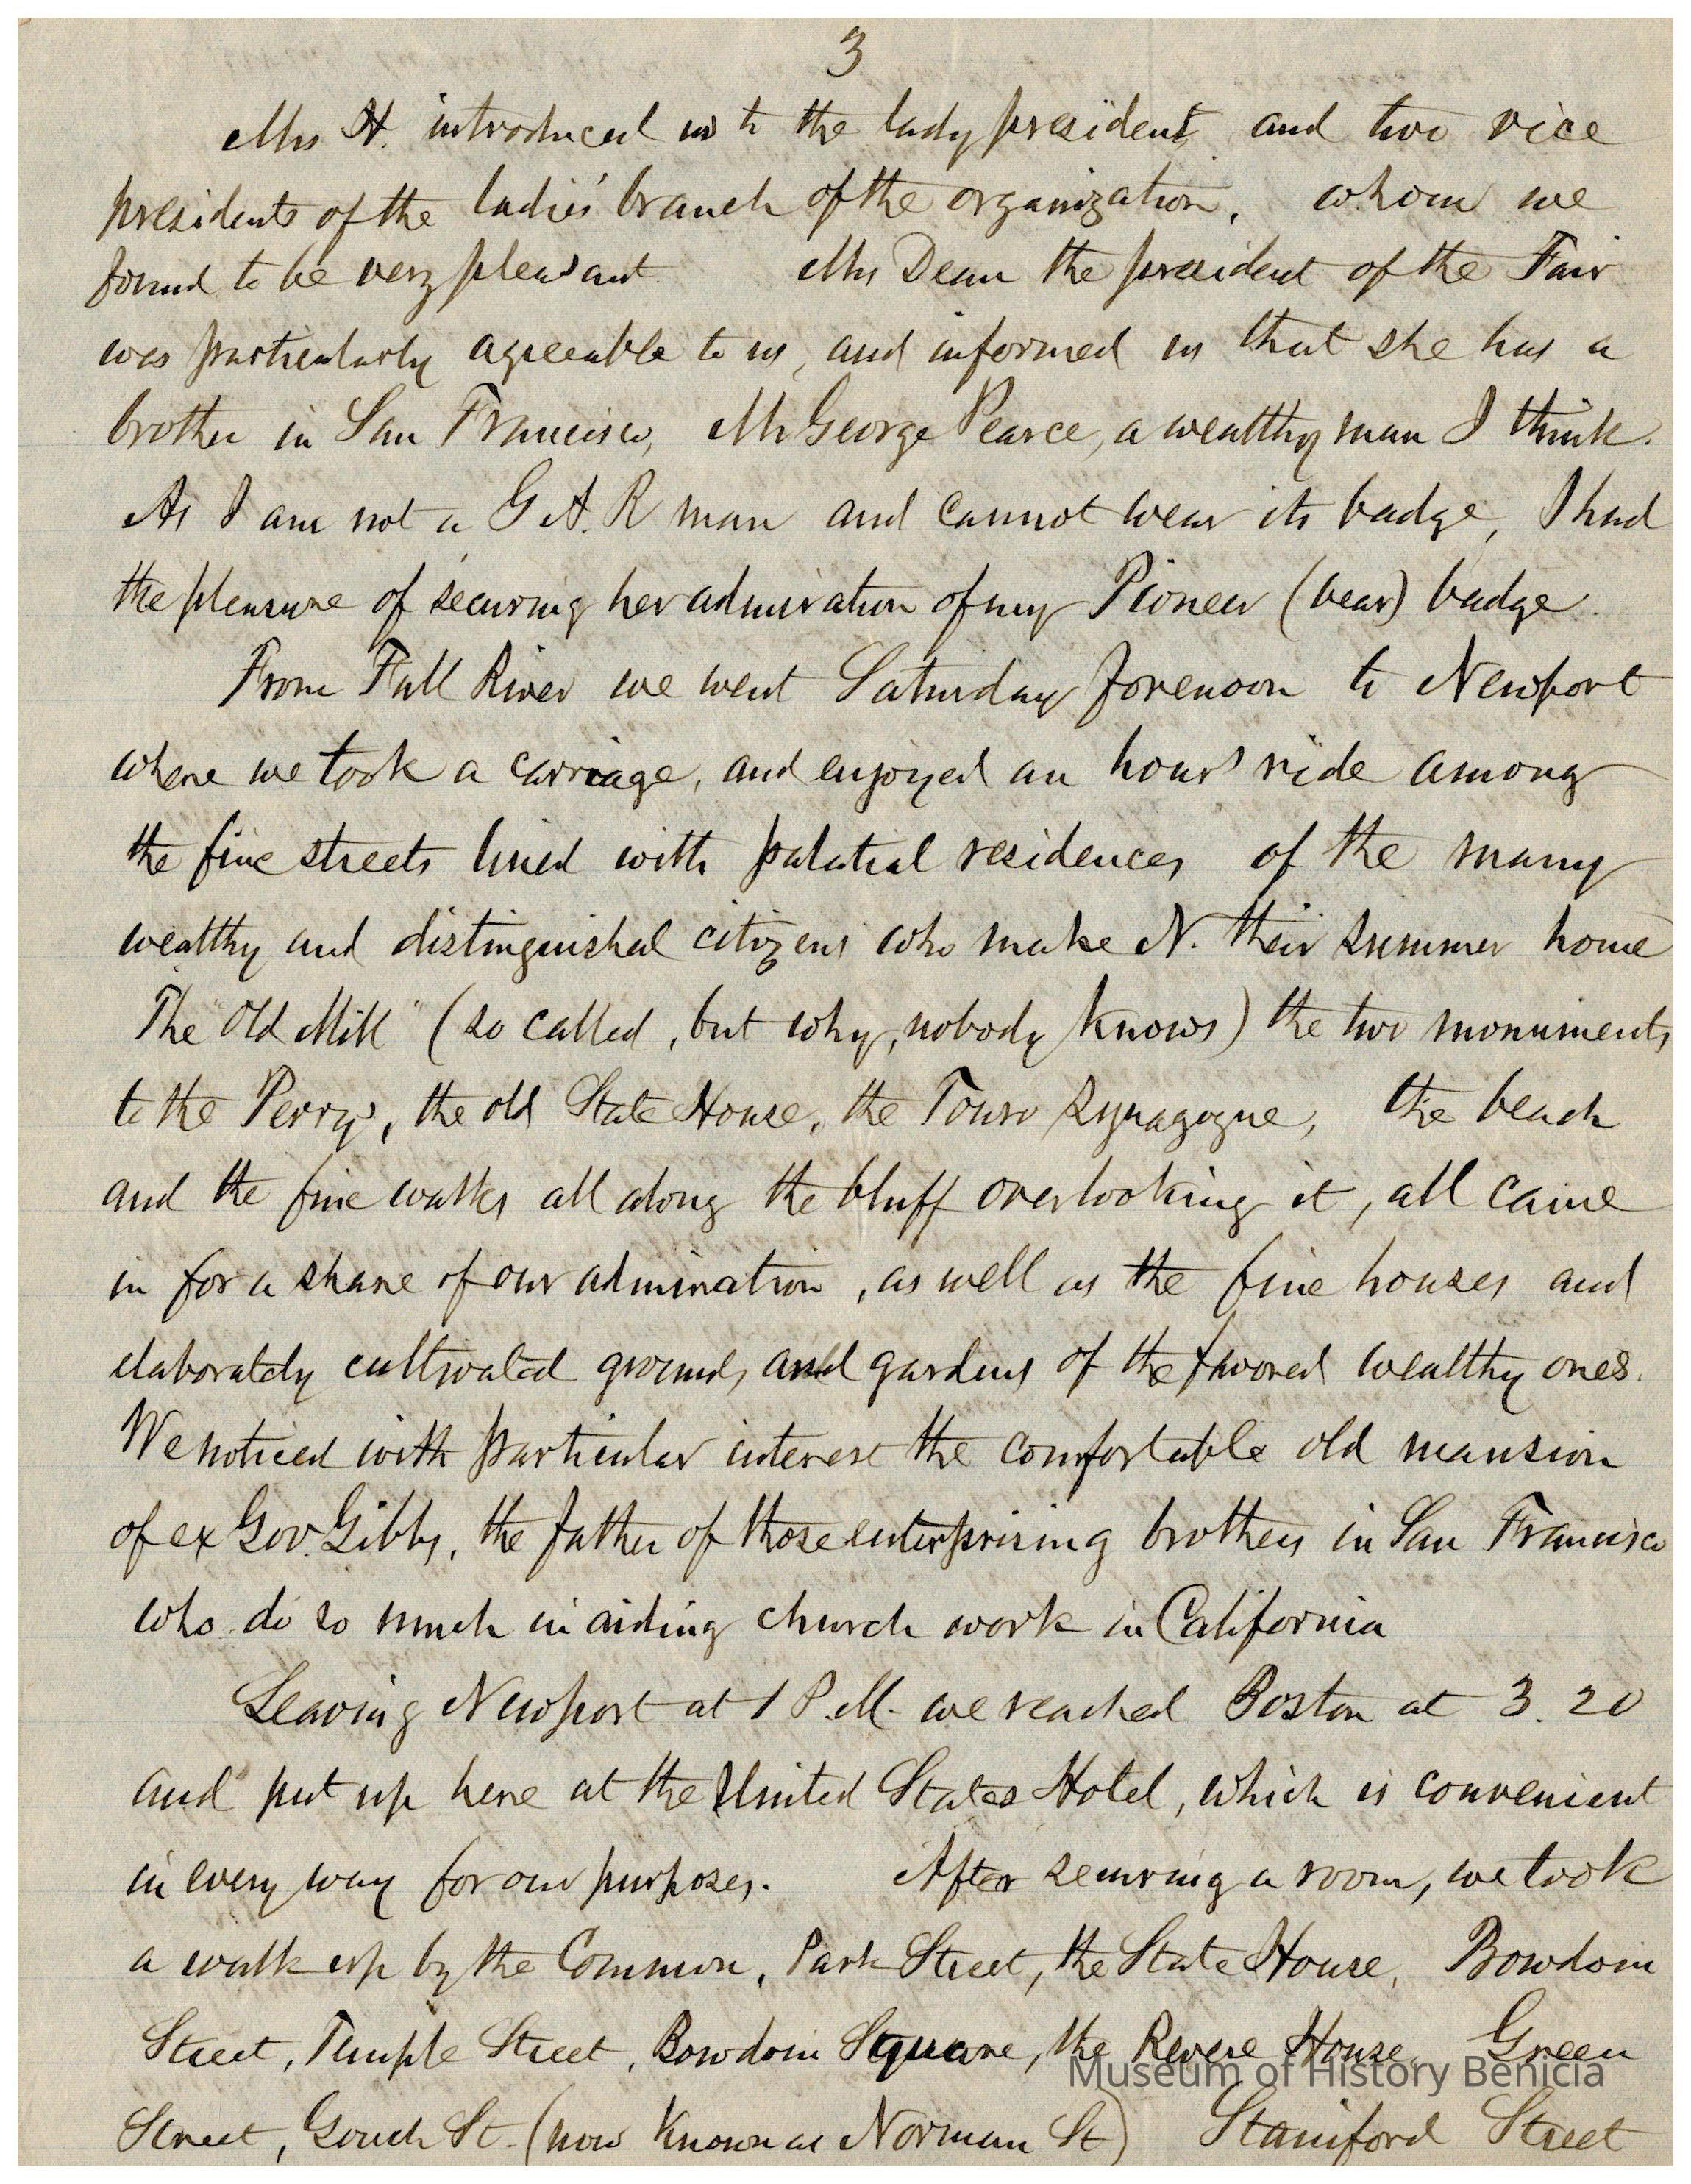 3
Mrs H. introduced us to the lady president and two vice
presidents of the ladies' branch of the organization, whom we
found to be very pleasant. Mrs Dean the president of the Fair
was particularly agreeable to us, and informed us that she has a
brother in San Francisco, Mr George Pearce, a wealthy man I think.
As I am not a G.A.R man and cannot wear its badge, I had
the pleasure of securing her admiration of my Pioneer (bear) badge.
From Fall River we went Saturday forenoon to Newport
where we took a carriage, and enjoyed an hour's ride among
the fine streets lined with palatial residences of the many
wealthy and distinguished citizens who make N. their summer home
The "Old Mill" (so called, but why, nobody knows) the two monuments
to the Perrys, the old State House, the Touro Synagogue, the beach
and the fine walks all along the bluff overlooking it, all came
in for a share of our admiration, as well as the fine houses and
elaborately cultivated grounds and gardens of the favored wealthy ones.
We noticed with particular interest the comfortable old mansion
of ex Gov. Gibbs, the father of those enterprising brothers in San Francisco
who do so much in aiding church work in California
Leaving Newport at 1 P.M. we reached Boston at 3.20
and put up here at the United States Hotel, which is convenient
in every way for our purposes. After securing a room, we took
a walk up by the Common, Park Street, the State House, Bowdoin
Street, Temple Street, Bowdoin Square, the Revere House, Green
Street, Gouch St. (now known as Norman St) Staniford Street
Museum of History Benicia